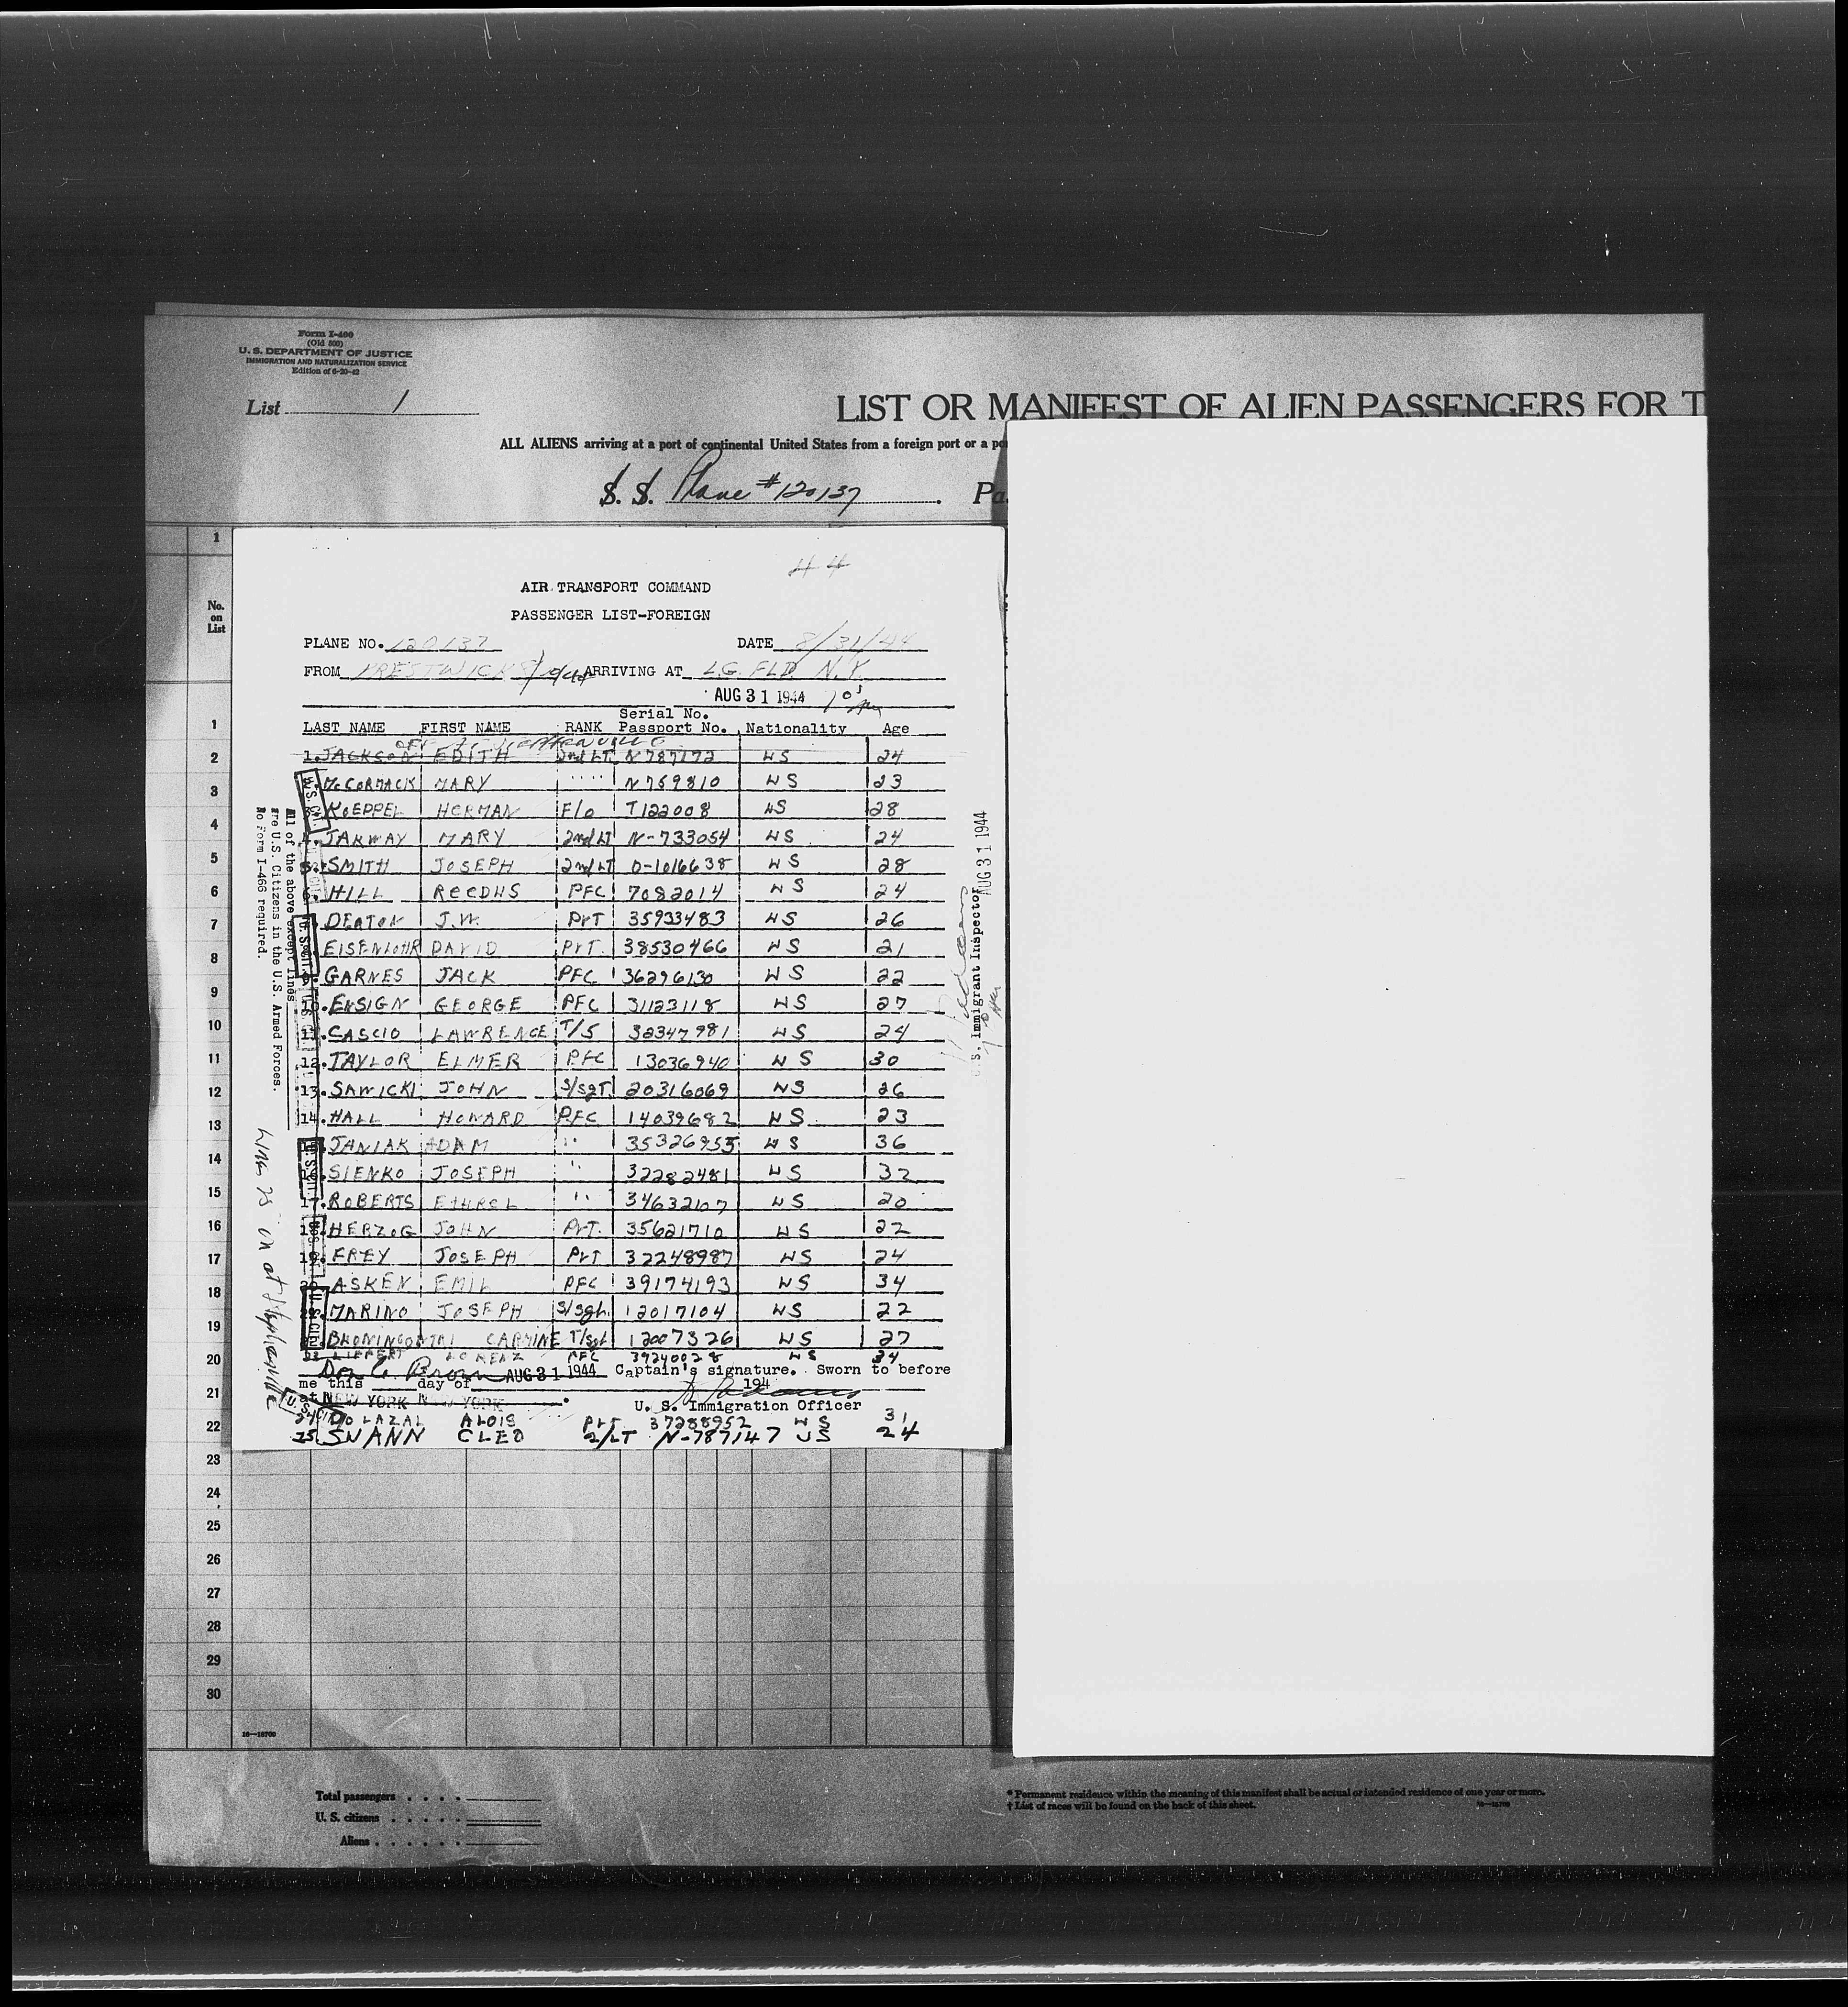 Form I-400
(Old 500)
U. S. DEPARTMENT OF JUSTICE
IMMIGRATION AND NATURALIZATION SERVICE
Edition of 6-20-42
List 1
LIST OR MANIFEST OF ALIEN PASSENGERS FOR T
ALL ALIENS arriving at a port of continental United States from a foreign port or a po
S. S. Plane #120137 . Pa
AIR TRANSPORT COMMAND
PASSENGER LIST-FOREIGN
PLANE NO. 120137 DATE 8/31/44
FROM PRESTWICK ARRIVING AT L.G. FLD N.Y.
AUG 31 1944
LAST NAME FIRST NAME RANK Serial No. Passport No. Nationality Age
1. JACKSON EDITH 2nd LT N787172 US 24
McCORMACK MARY " " N759810 US 23
KOEPPEL HERMAN F/O T122008 US 28
4. JAKWAY MARY 2nd LT N-733054 US 24
5. SMITH JOSEPH 2nd LT O-1016638 US 28
6. HILL REEDUS PFC 7082014 US 24
DEATON J.W. PVT 35933483 US 26
EISENLOHR DAVID PVT. 38530466 US 21
9. GARNES JACK PFC 36296130 US 22
10. ENSIGN GEORGE PFC 31123118 US 27
11. CASCIO LAWRENCE T/5 32347981 US 24
12. TAYLOR ELMER PFC 13036940 US 30
13. SAWICKI JOHN S/SGT. 20316069 US 26
14. HALL HOWARD PFC 14039682 US 23
15. JANIAK ADAM " 35326953 US 36
16. SIENKO JOSEPH " 32282481 US 32
17. ROBERTS " 34632107 US 20
18. HERZOG JOHN PVT. 35621710 US 22
19. FREY JOSEPH PVT 32248987 US 24
20. ASKEN EMIL PFC 39174193 US 34
21. MARINO JOSEPH S/Sgt. 12017104 US 22
22. CARMINE T/Sgt 12007326 US 27
23 LIPPERT LORENZ PFC 39240028 US 34
Don C. Brown AUG 31 1944 Captain's signature. Sworn to before
me this day of 194
at NEW YORK N. YORK . U. S. Immigration Officer
24 DOLAZAL ALOIS PVT. 37288952 US 31
25 SWANN CLEO 2/LT N-787147 US 24
All of the above except lines
are U.S. Citizens in the U.S. Armed Forces.
No Form I-466 required.
Line 25 on at Stephenville
U. S. CIT.
U. S. Immigrant Inspector
AUG 31 1944
No.
on
List
1
1
2
3
4
5
6
7
8
9
10
11
12
13
14
15
16
17
18
19
20
21
22
23
24
25
26
27
28
29
30
16—18700
Total passengers . . . .
U. S. citizens . . . . .
Aliens . . . . . .
* Permanent residence within the meaning of this manifest shall be actual or intended residence of one year or more.
† List of races will be found on the back of this sheet.